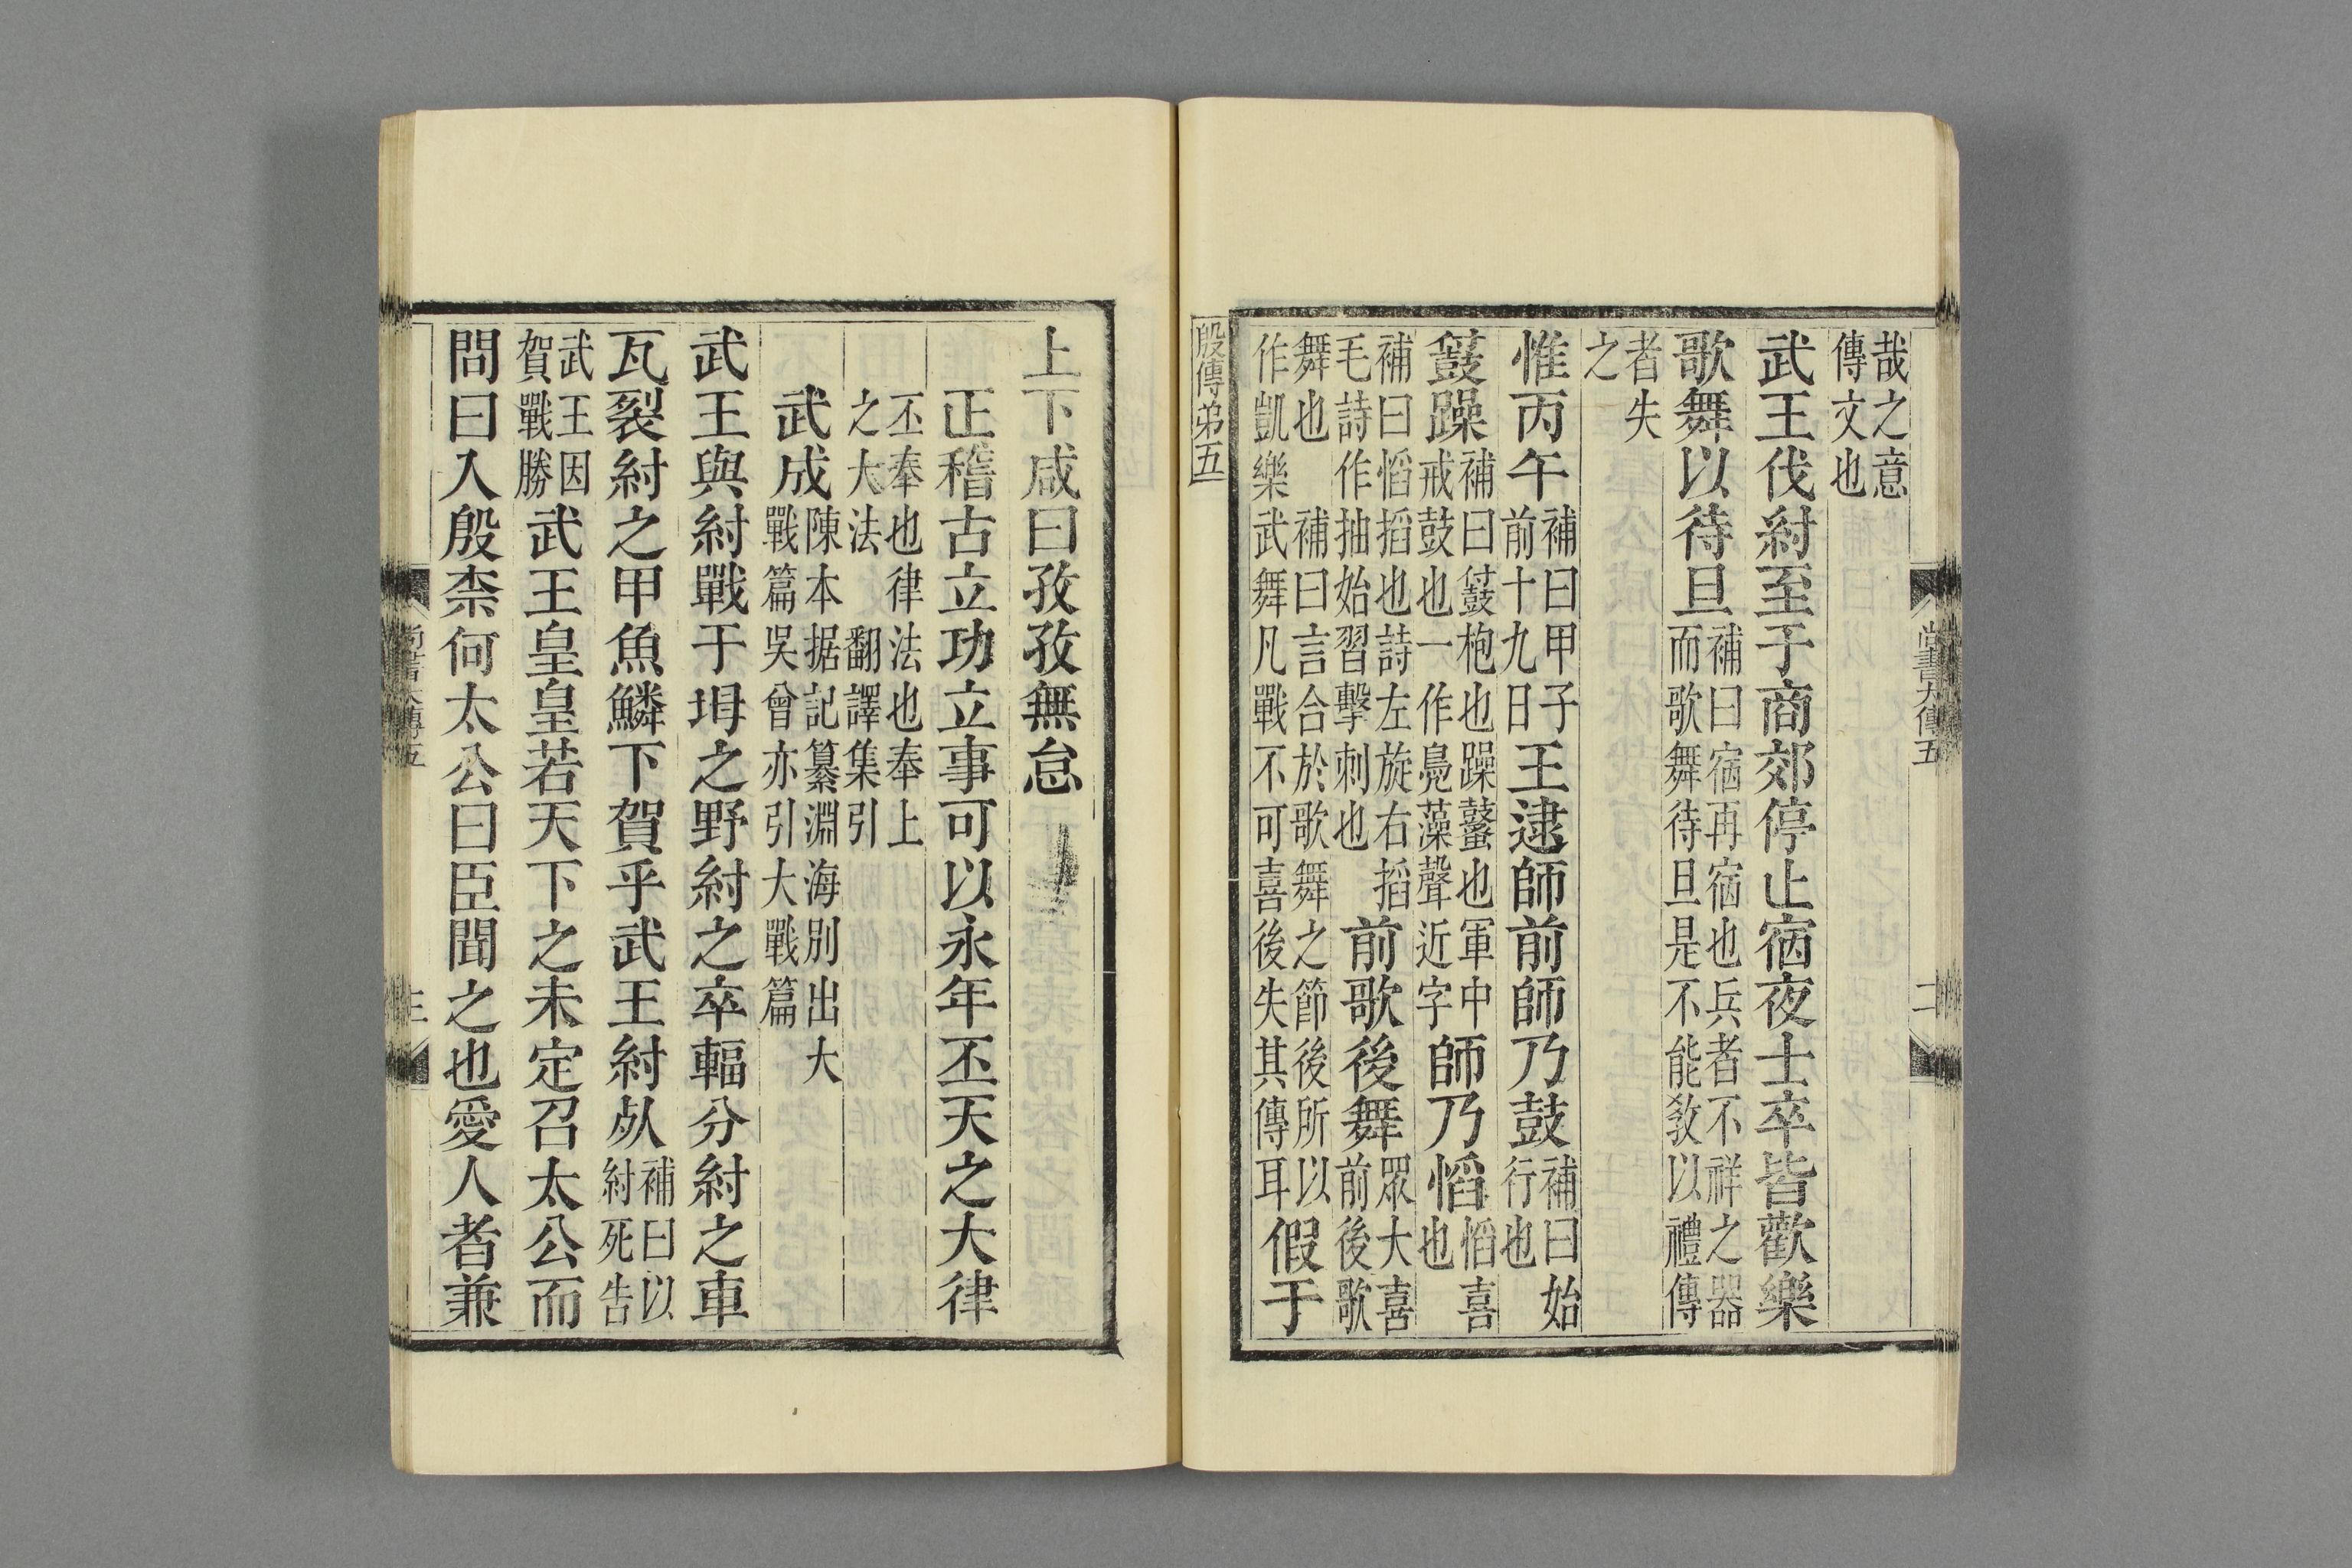 尚書大傳五
二
哉之意
傳文也
武王伐紂至于商郊停止宿夜士卒皆歡樂
歌舞以待旦補曰宿再宿也兵者不祥之器而歌舞待旦是不能敎以禮傳
者失
之
惟丙午補曰甲子前十九日王逮師前師乃鼓補曰始行也
躁補曰枹也躁鼜也軍中戒鼓也一作鳧藻聲近字師乃慆慆喜也
補曰慆搯也詩左旋右搯毛詩作抽始習擊刺也前歌後舞眾大喜前後歌
舞也 補曰言合於歌舞之節後所以作凱樂武舞凡戰不可喜後失其傳耳假于
殷傳弟五
上下咸曰孜孜無怠
正稽古立功立事可以永年丕天之大律
丕奉也律法也奉上
之大法 翻譯集引
武成陳本据記纂淵海別出大戰篇吳曾亦引大戰篇
武王與紂戰于坶之野紂之卒輻分紂之車
瓦裂紂之甲魚鱗下賀乎武王紂㱙補曰以紂死告
武王因賀戰勝武王皇皇若天下之未定召太公而
問曰入殷柰何太公曰臣聞之也愛人者兼
尚書大傳五
三